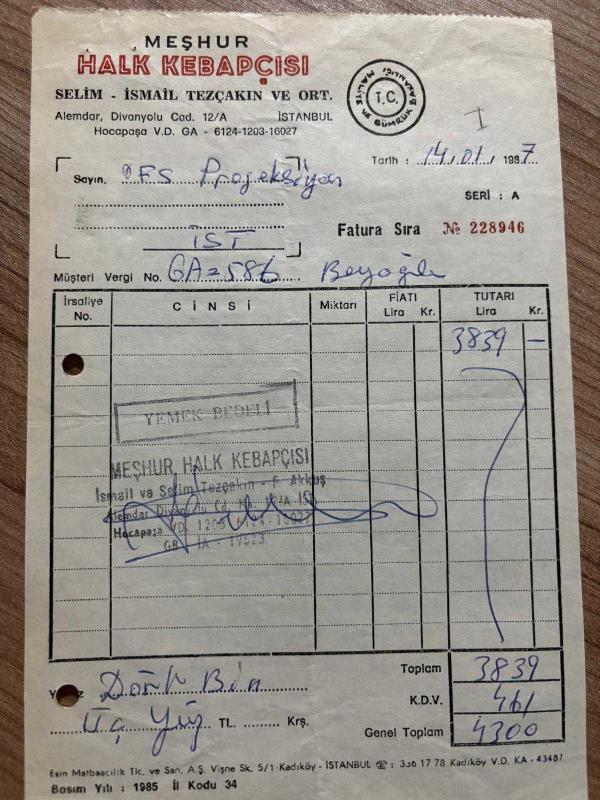 MEŞHUR
HALK KEBAPÇISI
SELİM - İSMAİL TEZÇAKIN VE ORT.
Alemdar, Divanyolu Cad. 12/A İSTANBUL
Hocapaşa V.D. GA - 6124-1203-16027
T.C.
MALİYE VE GÜMRÜK BAKANLIĞI
Tarih : 14/01/1987
SERİ : A
Sayın, EFS Projeksiyon
İST
Fatura Sıra № 228946
Müşteri Vergi No. GA=586 Beyoğlu
İrsaliye No. CİNSİ Miktarı FİATI Lira Kr. TUTARI Lira Kr.
3839 —
YEMEK BEDELİ
MEŞHUR HALK KEBAPÇISI
İsmail ve Selim Tezçakın - F. Akkuş
Alemdar Divanyolu Cd. No. 12/A İST
Hocapaşa VD. 1203 6124 - 16027
GB - IA - 19623
Toplam 3839
K.D.V. 461
Genel Toplam 4300
Dört Bin
Üç Yüz TL. Krş.
Esin Matbaacılık Tic. ve San. A.Ş. Vişne Sk. 5/1 Kadıköy - İSTANBUL ☎ : 336 17 78 Kadıköy V.D. KA - 43487
Basım Yılı : 1985 İl Kodu 34